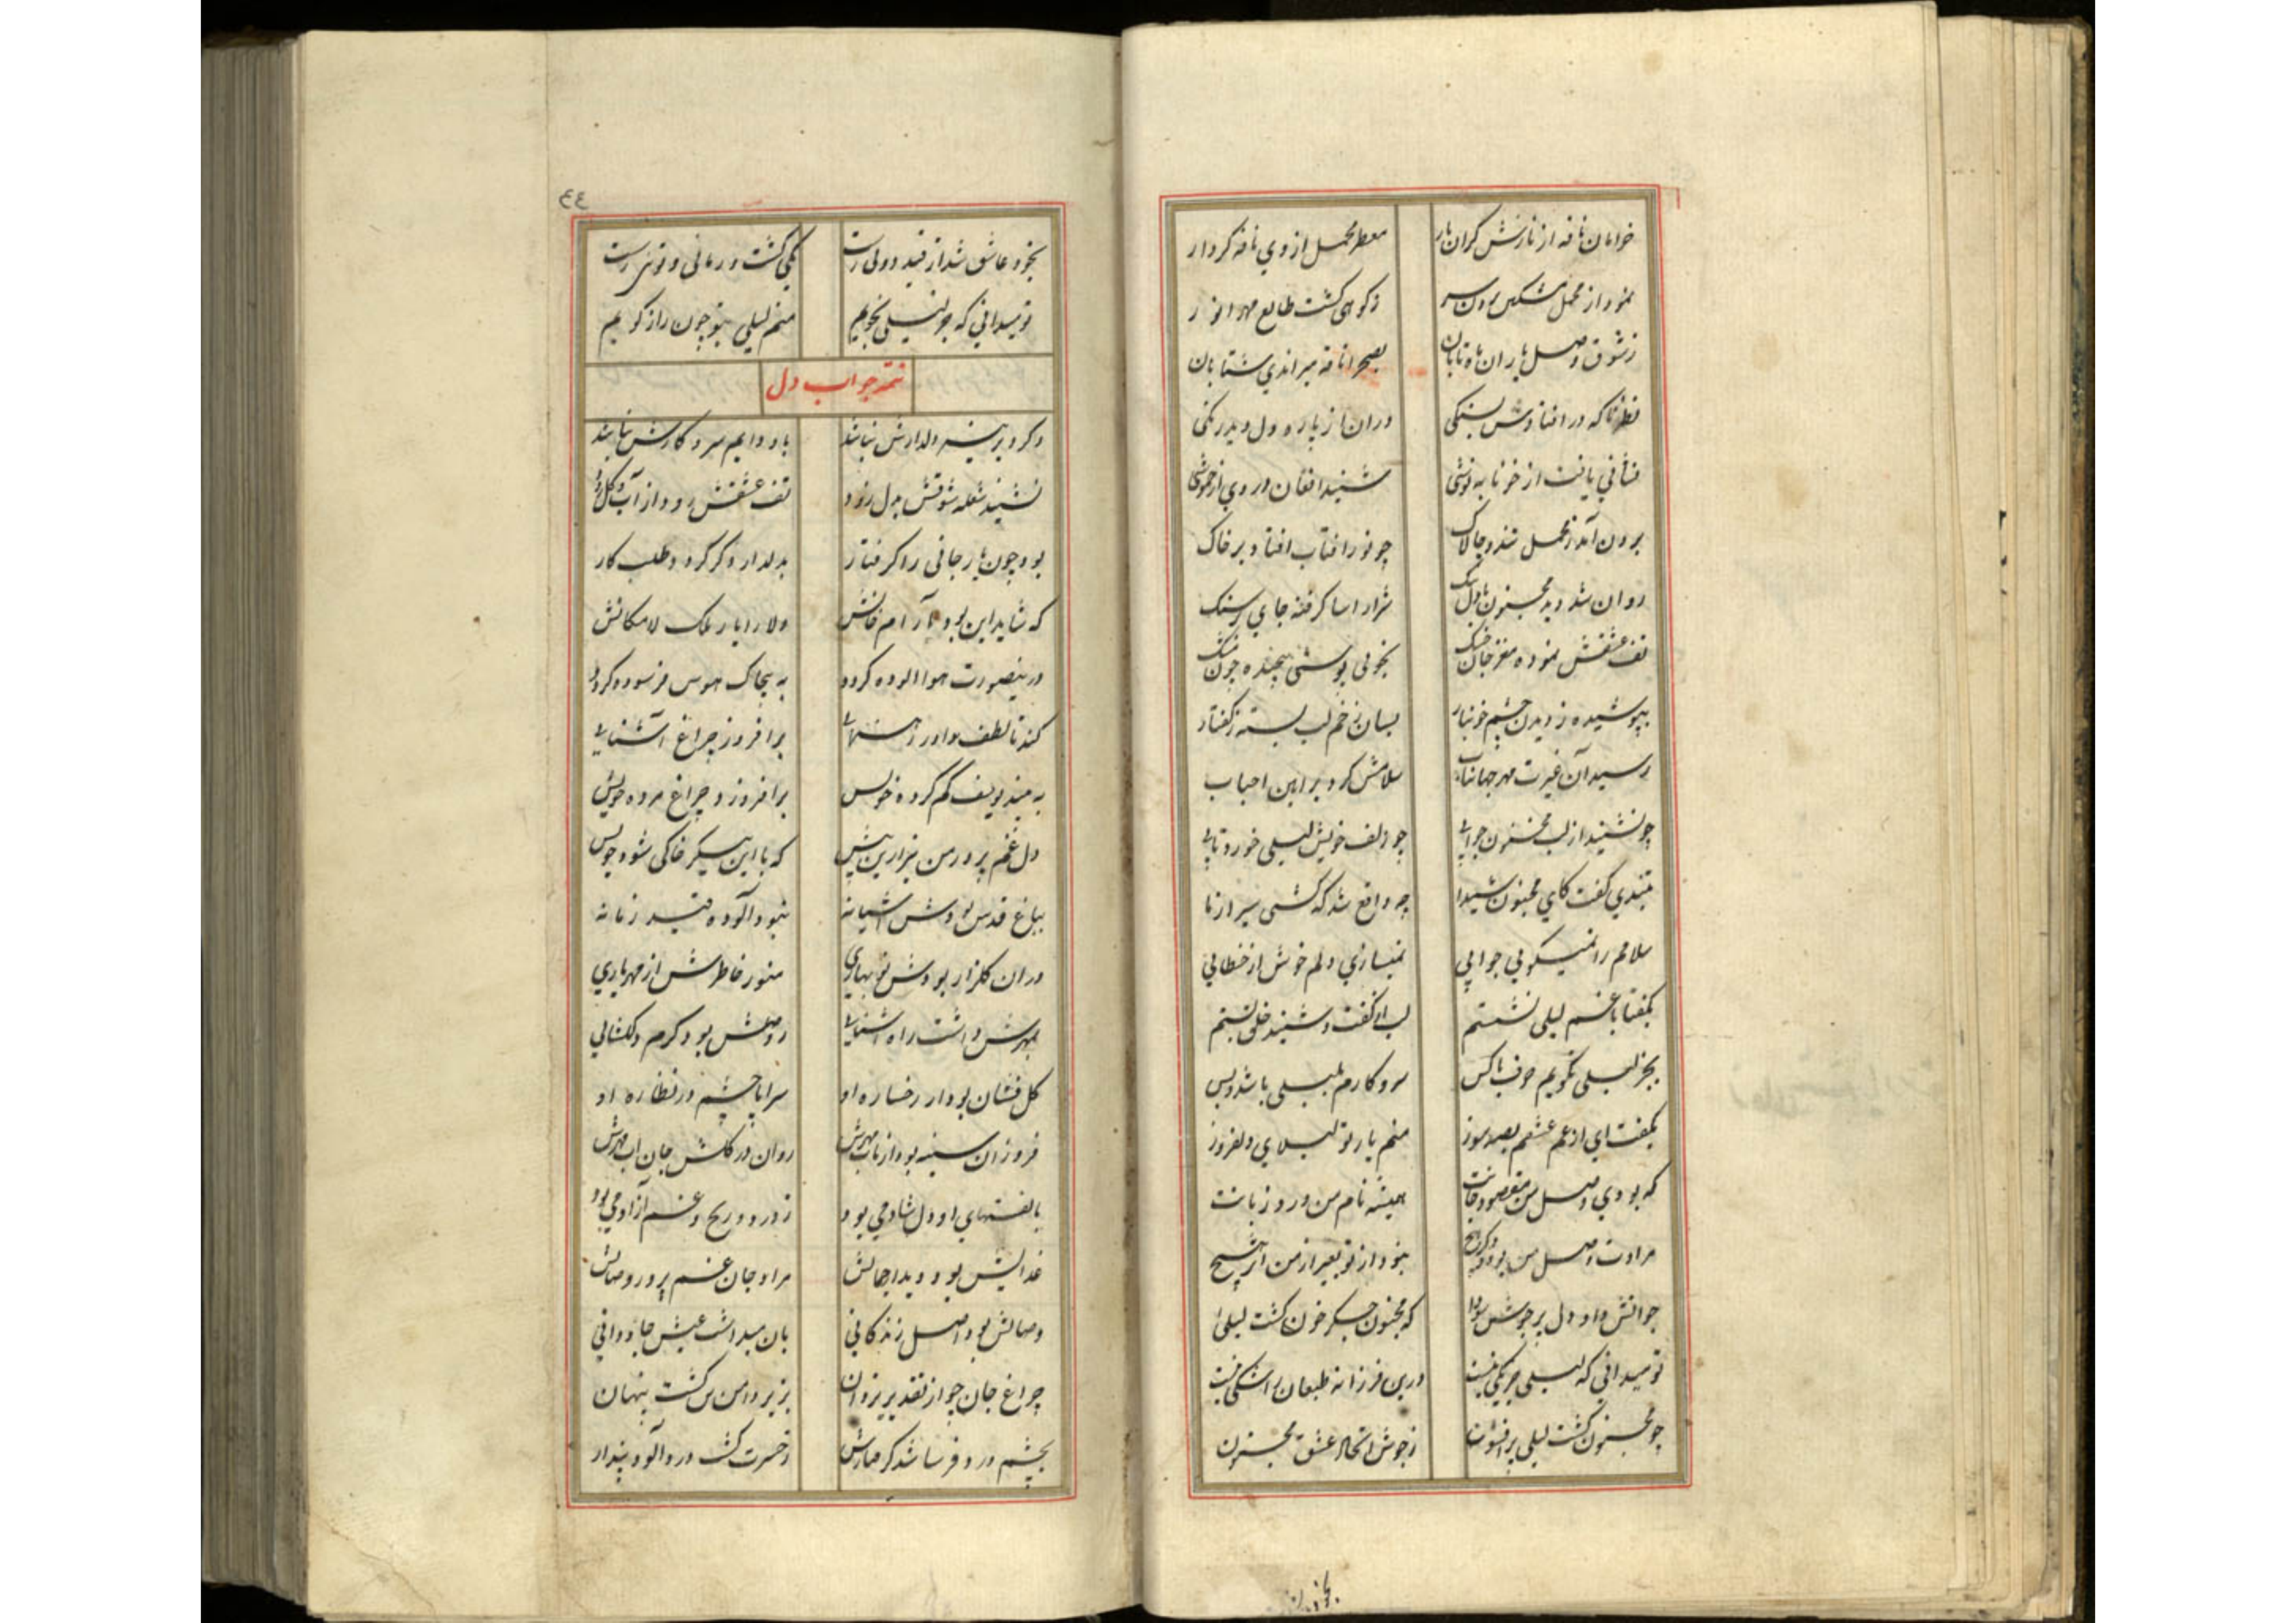 خرامان ناقه از نازش کران بار معطر محمل از وی نافه کردار
نمود از محمل مشکین برون سر ز کوهی کشت طالع مهر انور
ز شوق وصل یاران ماه تابان بصحرا ناقه میراندی شتابان
نظر ناکه در افتادش بسنکی دران از پاره دل دید رنکی
نشانی یافت از خونابه نوشی شنید افغان در وی از خموشی
برون آمد ز محمل تند و چالاک چو نور افتاب افتاد بر خاک
روان شد دید مجنون با دل تنک شرار اسا کرفته جای در سنک
تف عشقش نموده مغز جان خشک بخونی پوستی پیچیده چون مشک
بپوشیده ز دیدن چشم خونبار بسان زخم لب بسته ز کفتار
رسید آن غیرت مهر جهانتاب سلامش کرد بر ایین احباب
چو نشنید از لب مجنون جوابی چو زلف خویش لیلی خورد تابی
بتندی کفت کای مجنون شیدا چه واقع شد که کشتی سیر از ما
سلامم را نمیکویی جوابی نمیسازی دلم خوش از خطابی
بکفتا با غم لیلی نشستم لب از کفت و شنید خلق بستم
بجز لیلی نکویم حرف با کس سر و کارم بلیلی باشد و بس
بکفت ای از غم عشقم بصد سوز منم یار تو لیلای دلفروز
که بودی وصل من مقصود جانت همیشه نام من ورد زبانت
مرادت وصل من بود و دکر هیچ نبود از تو بغیر از من اثر هیچ
جوابش داد دل پر جوش سودا که مجنون جکر خون کشت لیلی
تو میدانی که لیلی جز یکی نیست درین فرزانه طبعان را شکی نیست
چو مجنون کشت لیلی پر افسون ز جوش اتحاد عشق مجنون
بخود
٤٤
بخود عاشق شد از قید دوئی رست یکی کشت و ز مائی و توئی رست
تو میدانی که جز لیلی نجویم منم لیلی بتو چون راز کویم
تتمه جواب دل
دکر در سینه دلدارش نباشد باو دایم سر و کارش نباشد
نشیند شعله شوقش بدل زود تف عشقش رود از آب و کل زود
بود چون یار جانی را کرفتار بدلدار دکر کرد طلب کار
که شاید این بود آرام جانش دلارا یار ملک لامکانش
درینصورت هوا الوده کردد به بیچاک هوس فرسوده کردد
کند تا لطف داور رهنمایی برافروزد چراغ آشنایی
به بیند یوسف کم کرده خویش برافروزد چراغ مرده خویش
دل غم پرور من نیز ازین پیش که با این پیکر خاکی شود خویش
بباغ قدس بودش اشیانه نبود آلوده قید زمانه
دران کلزار بودش نوبهاری منور خاطرش از مهر یاری
بمهرش داشت راه اشنایی ز وصلش بود کرم دلکشایی
کل فشان بود از رخساره او سراپا چشم در نظاره او
فروزان سینه بود از تاب مهرش روان در کلشن جان اب مهرش
بالفتهای او دل شاد می بود ز درد و رنج و غم آزاد می بود
غدایش بود دیدار جمالش مراد جان غم پرور وصالش
وصالش بود اصل زندکانی بان میداشت عیش جاودانی
چراغ جان چو از تقدیر یزدان بزیر دامن تن کشت پنهان
بچشم درد فرسا شد کرفتارش ز حسرت کشت درد آلود پندار